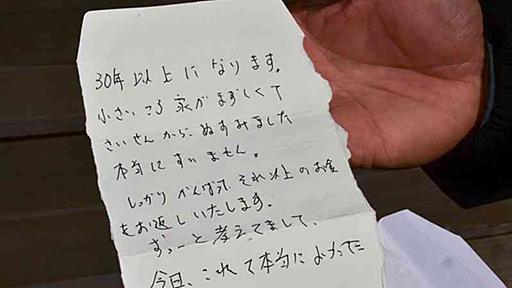 30年以上になります。
小さいころ家がまずしくて
さいせんからぬすみました
本当にすいません。
しっかりがんばってそれ以上のお金
をお返しいたします。
ずっーと考えてまして、
今日、これて本当によかったで